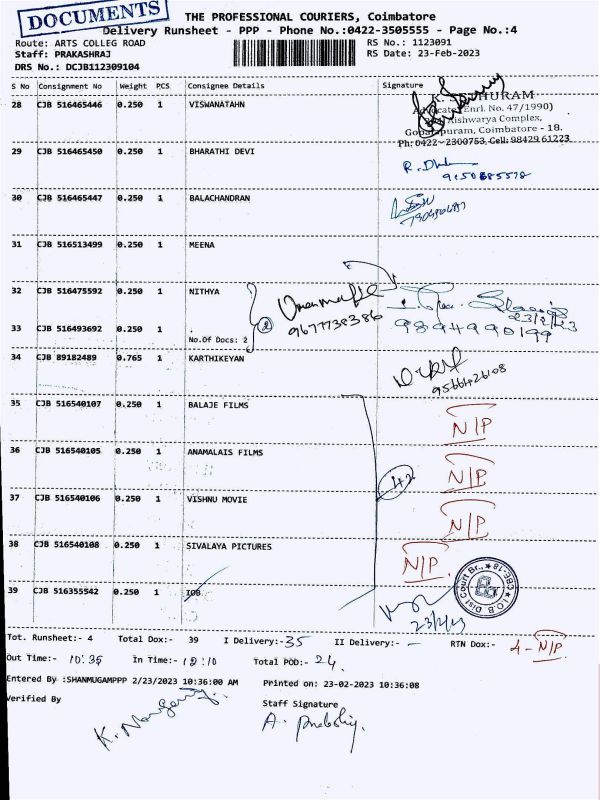 DOCUMENTS
THE PROFESSIONAL COURIERS, Coimbatore
Delivery Runsheet - PPP - Phone No.:0422-3505555 - Page No.:4
Route: ARTS COLLEG ROAD
RS No.: 1123091
Staff: PRAKASHRAJ
RS Date: 23-Feb-2023
DRS No.: DCJB112309104
S No Consignment No Weight PCS Consignee Details Signature
28 CJB 516465446 0.250 1 VISWANATAHN
HURAM
Advocate Enrl. No. 47/1990)
Aishwarya Complex,
Gopalapuram, Coimbatore - 18.
Ph: 0422 - 2300753, Cell: 98429 61223
29 CJB 516465450 0.250 1 BHARATHI DEVI
30 CJB 516465447 0.250 1 BALACHANDRAN
31 CJB 516513499 0.250 1 MEENA
32 CJB 516475592 0.250 1 NITHYA
9677738386
23/2/23
9894990199
33 CJB 516493692 0.250 1 .
No.Of Docs: 2
2
34 CJB 89182489 0.765 1 KARTHIKEYAN
9566426108
35 CJB 516540107 0.250 1 BALAJE FILMS
N/P
36 CJB 516540105 0.250 1 ANAMALAIS FILMS
N/P
37 CJB 516540106 0.250 1 VISHNU MOVIE
N/P
38 CJB 516540108 0.250 1 SIVALAYA PICTURES
N/P
39 CJB 516355542 0.250 1 IOB
I.O.B. Dist Court Br., CBE-18
Tot. Runsheet:- 4 Total Dox:- 39 I Delivery:- 35 II Delivery:- - RTN Dox:- 4 - N/P
Out Time:- 10:35 In Time:- Total POD:- 24
Entered By :SHANMUGAMPPP 2/23/2023 10:36:00 AM Printed on: 23-02-2023 10:36:08
Verified By
Staff Signature